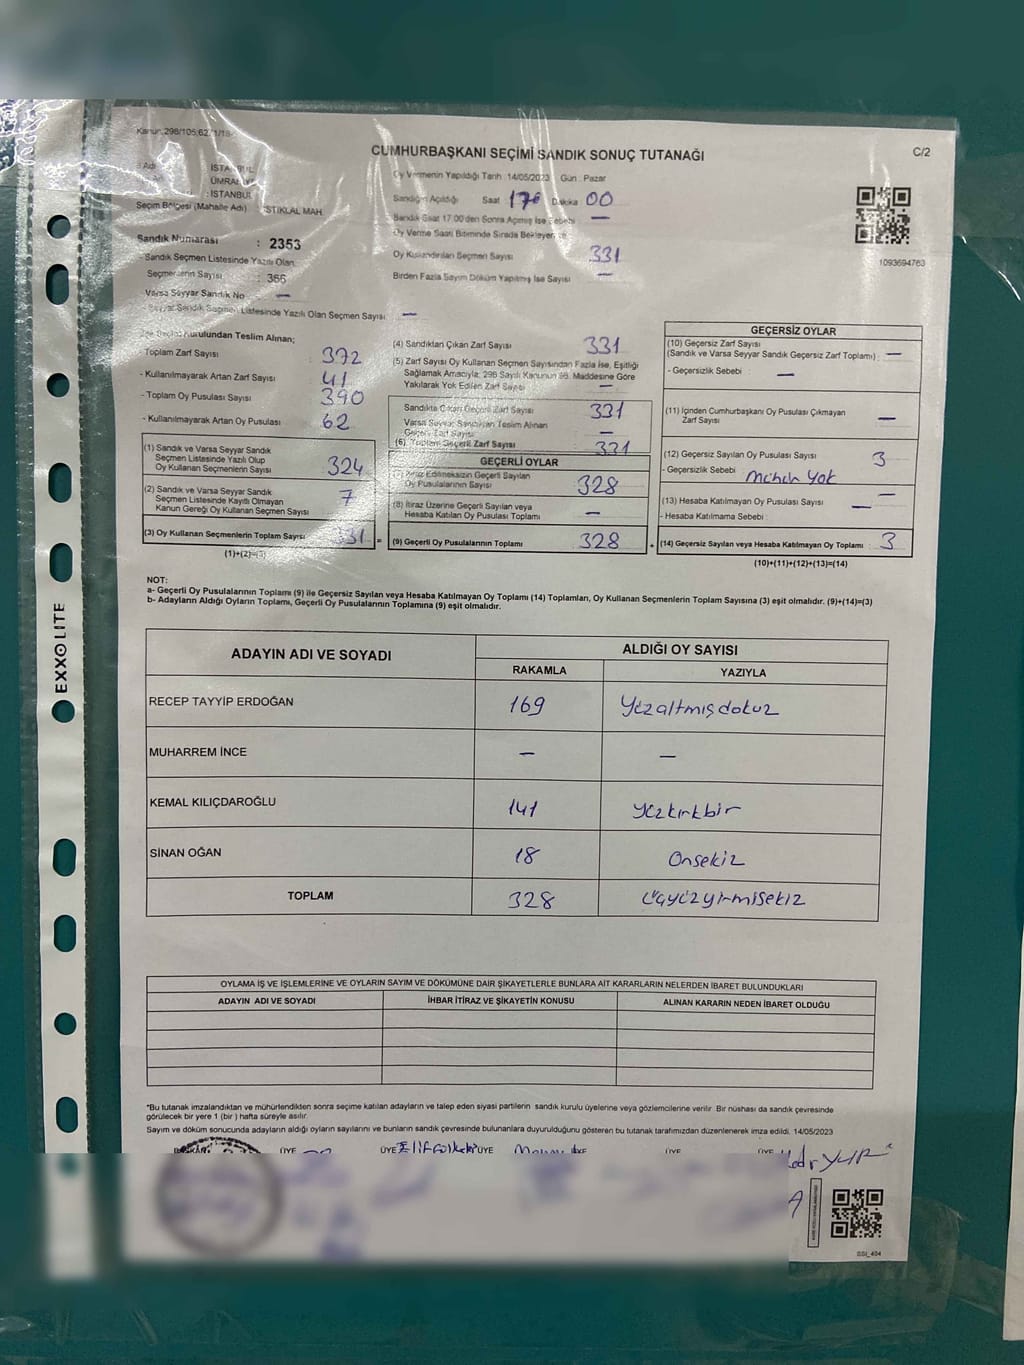 Kanun 298/105,62/1/18-
CUMHURBAŞKANI SEÇİMİ SANDIK SONUÇ TUTANAĞI
C/2
Adı : İSTANBUL
Adı : ÜMRANİYE
: İSTANBUL
Seçim Bölgesi (Mahalle Adı) : İSTİKLAL MAH.
Oy Vermenin Yapıldığı Tarih : 14/05/2023 Gün : Pazar
Sandığın Açıldığı Saat 17 Dakika 00
Sandık Saat 17:00'den Sonra Açılmış İse Sebebi —
Oy Verme Saati Bitiminde Sırada Bekleyen
Oy Kullandırılan Seçmen Sayısı 331
Birden Fazla Sayım Döküm Yapılmış İse Sayısı —
1093694763
Sandık Numarası : 2353
Sandık Seçmen Listesinde Yazılı Olan
Seçmenlerin Sayısı : 366
Varsa Seyyar Sandık No —
Seyyar Sandık Seçmen Listesinde Yazılı Olan Seçmen Sayısı —
İlçe Seçim Kurulundan Teslim Alınan;
- Toplam Zarf Sayısı : 372
- Kullanılmayarak Artan Zarf Sayısı : 41
- Toplam Oy Pusulası Sayısı : 390
- Kullanılmayarak Artan Oy Pusulası : 62
(1) Sandık ve Varsa Seyyar Sandık
Seçmen Listesinde Yazılı Olup
Oy Kullanan Seçmenlerin Sayısı : 324
(2) Sandık ve Varsa Seyyar Sandık
Seçmen Listesinde Kayıtlı Olmayan
Kanun Gereği Oy Kullanan Seçmen Sayısı : 7
(3) Oy Kullanan Seçmenlerin Toplam Sayısı 331 =
(1)+(2)=(3)
(4) Sandıktan Çıkan Zarf Sayısı 331
(5) Zarf Sayısı Oy Kullanan Seçmen Sayısından Fazla İse, Eşitliği
Sağlamak Amacıyla; 298 Sayılı Kanunun 98. Maddesine Göre
Yakılarak Yok Edilen Zarf Sayısı —
Sandıkta Çıkan Geçerli Zarf Sayısı 331
Varsa Seyyar Sandıktan Teslim Alınan
Geçerli Zarf Sayısı —
(6) Toplam Geçerli Zarf Sayısı 331
GEÇERLİ OYLAR
(7) İtiraz Edilmeksizin Geçerli Sayılan
Oy Pusulalarının Sayısı 328
(8) İtiraz Üzerine Geçerli Sayılan veya
Hesaba Katılan Oy Pusulası Toplamı —
(9) Geçerli Oy Pusulalarının Toplamı 328 +
GEÇERSİZ OYLAR
(10) Geçersiz Zarf Sayısı
(Sandık ve Varsa Seyyar Sandık Geçersiz Zarf Toplamı) : —
- Geçersizlik Sebebi : —
(11) İçinden Cumhurbaşkanı Oy Pusulası Çıkmayan
Zarf Sayısı —
(12) Geçersiz Sayılan Oy Pusulası Sayısı : 3
- Geçersizlik Sebebi : Mühür Yok
(13) Hesaba Katılmayan Oy Pusulası Sayısı —
- Hesaba Katılmama Sebebi : —
(14) Geçersiz Sayılan veya Hesaba Katılmayan Oy Toplamı : 3
(10)+(11)+(12)+(13)=(14)
NOT:
a- Geçerli Oy Pusulalarının Toplamı (9) ile Geçersiz Sayılan veya Hesaba Katılmayan Oy Toplamı (14) Toplamları, Oy Kullanan Seçmenlerin Toplam Sayısına (3) eşit olmalıdır. (9)+(14)=(3)
b- Adayların Aldığı Oyların Toplamı, Geçerli Oy Pusulalarının Toplamına (9) eşit olmalıdır.
ADAYIN ADI VE SOYADI ALDIĞI OY SAYISI
RAKAMLA YAZIYLA
RECEP TAYYİP ERDOĞAN 169 Yüzaltmışdokuz
MUHARREM İNCE — —
KEMAL KILIÇDAROĞLU 141 Yüzkırkbir
SİNAN OĞAN 18 Onsekiz
TOPLAM 328 Üçyüzyirmisekiz
OYLAMA İŞ VE İŞLEMLERİNE VE OYLARIN SAYIM VE DÖKÜMÜNE DAİR ŞİKAYETLERLE BUNLARA AİT KARARLARIN NELERDEN İBARET BULUNDUKLARI
ADAYIN ADI VE SOYADI İHBAR İTİRAZ VE ŞİKAYETİN KONUSU ALINAN KARARIN NEDEN İBARET OLDUĞU
*Bu tutanak imzalandıktan ve mühürlendikten sonra seçime katılan adayların ve talep eden siyasi partilerin sandık kurulu üyelerine veya gözlemcilerine verilir. Bir nüshası da sandık çevresinde
görülecek bir yere 1 (bir ) hafta süreyle asılır.
Sayım ve döküm sonucunda adayların aldığı oyların sayılarını ve bunların sandık çevresinde bulunanlara duyurulduğunu gösteren bu tutanak tarafımızdan düzenlenerek imza edildi. 14/05/2023
BAŞKAN ÜYE ÜYE ÜYE ÜYE ÜYE ÜYE
SSI_404
EXXOLITE